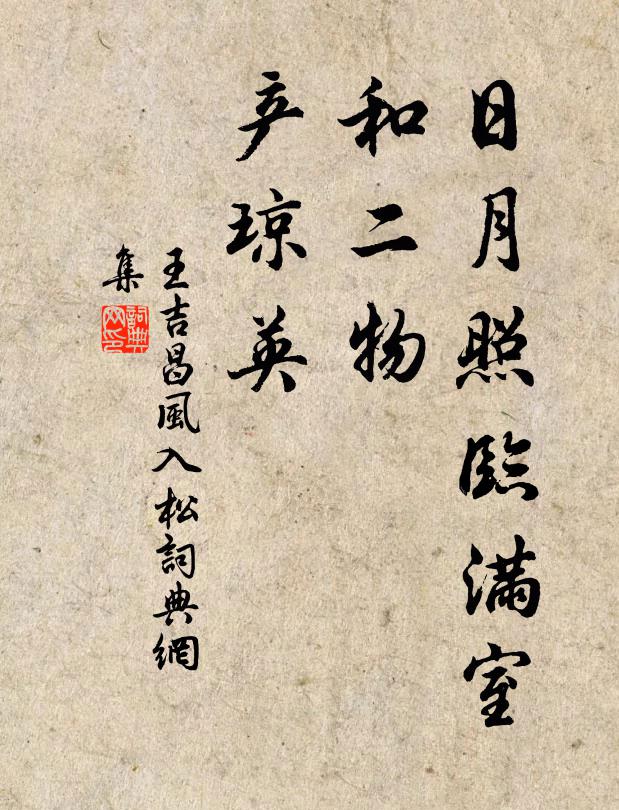 日月照臨满室
和二物
产琼英
王吉昌風入松詞典網
集
詞典
网印